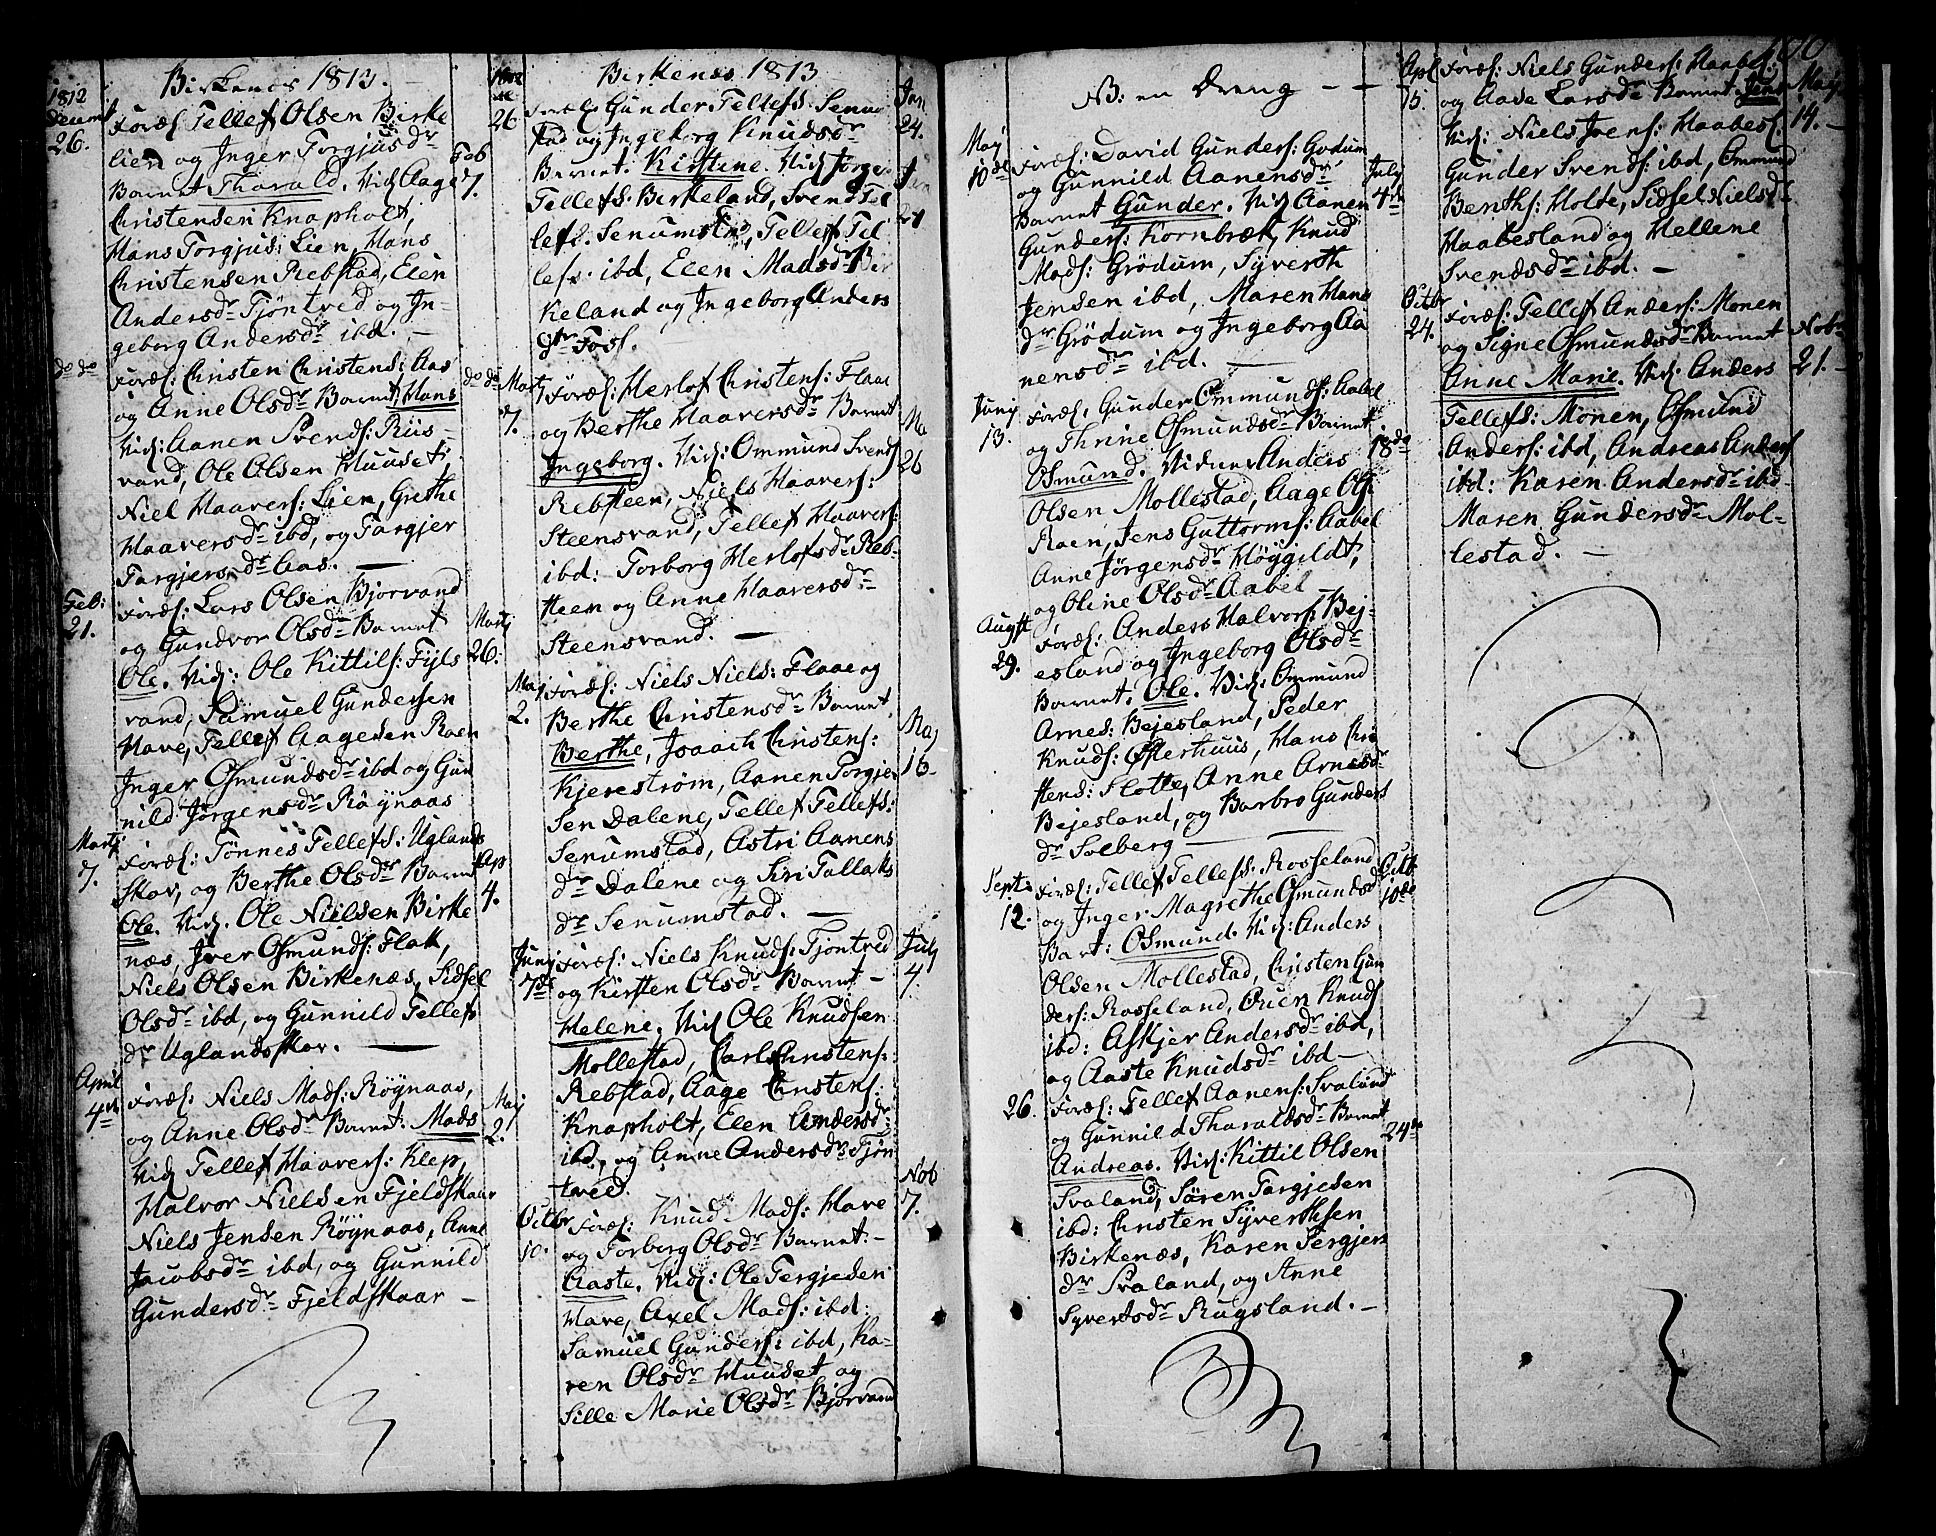 Birkenes 1813. —
1812
Decemt
26.
Foræl Tellef Olsen Birke
lien og Inger Torgjusdr
Barnet Tharald. Vid. Aage
Feb
7.
Christensen Knapholt,
Hans Torgjus: Lien, Hans
Christensen Rebstad, Elen
Andersdr Tjöntved og In-
geborg Andersdr ibd. —
do do
Foræl: Christen Christens: Aas
do do
og Anne Olsdr Barnet: Hans
Vid: Aanen Svends: Riis-
vand, Ole Olsen Huuset:
Niel Haavers: Lien, Grethe
Haaversdr ibd, og Targjer
Targjersdr Aas. —
Feb:
21.
Foræl: Lars Olsen Bjorvand
og Gundvor Olsdr Barnet
Martj
26:
Ole. Vid: Ole Kittils: Fijls
vand, Samuel Gundersen
Have, Tellef Aagesen Roen
Inger Osmundsdr ibd og Gun
nild Jörgensdr Röynaas
Martj
7.
Foræl: Tönnes Tellefs: Uglands
skor, og Berthe Olsdr Barnet
Ap
4.
Ole. Vid. Ole Nielsen Birke
næs, Iver Osmunds: Flak,
Niels Olsen Birkenæs, Sidsel
Olsdr ibd, og Gunnild Tellefs
dr Uglandsskor. —
April
4de
Foræl: Niels Mads: Röynaas,
og Anne Olsdr Barnet: Mads
Maj
2.
Vid Tellef Haavers: Klep,
Halvor Nielsen Fjeldskaar
Niels Jensen Röynaas, Anne
Jacobsdr ibd, og Gunnild
Gundersdr Fjeldskaar —
Birkenæs 1813
26
Foræl Gunder Tellefs: Senum
stad og Ingeborg Knudsdr
Jan
24.
Barnet. Kirstene. Vid Jörgen
Tellefs: Birkeland, Svend Tel
lefs. Senumstad, Tellef Tel
lefs: ibd, Elen Madsdr Bir
keland og Ingeborg Anders
dr Foss.
Mart
7.
Foræl: Herlof Christens: Flaae
og Berthe Haaversdr Barnet
Ma
26
Ingeborg. Vid: Ommund Svends
Rebsteen, Niels Haavers:
Steensvand, Tellef Haavers:
ibd: Torborg Herlofsdr Reb-
steen og Anne Haaversdr
Steensvand. —
Maj
2.
Foræl: Niels Niels: Flaae og
Berthe Christensdr Barnet
Maj
16
Berthe, Joaach Christens:
Kjereström, Aanen Torgjer
sen Dalene, Tellef Tellefs:
Senumstad, Astri Aanens
dr Dalene og Siri Tallaks
dr Senumstad. —
Junj
7de
Foræl: Niels Knuds: Tjöntved
og Kirsten Olsdr Barnet —
July
4
Helene. Vid Ole Knudsen
Mollestad, Carl Christens:
Rebstad, Aage Christens:
Knapholt, Elen Andersdr
ibd, og Anne Andersdr Tjön
tved.
Octbr
10.
Foræl: Knud Mads: Have
og Torborg Olsdr Barnet: —
Nob
7.
Aaste. Vid: Ole Tergjesen
Have, Axel Mads: ibd:
Samuel Gunders: ibd, Ka-
ren Olsdr Huuset og
Sille Marie Olsdr Bjorvand
NB: en Dreng — — —
Maj
10de
Foræl: David Gunders: Grödum
og Gunnild Aanensdr
July
4de
Barnet Gunder. Vid Aanen
Gunders: Kornbræk, Knud
Mads: Grödum, Syverth
Jensen ibd, Maren Hans
dr Grödum og Ingeborg Aa
nensdr ibd. —
Junj
13.
Foræl. Gunder Ommunds: Aabel
og Thrine Osmundsdr Barnet
18de
Osmund. Vidner Anders
Olsen Mollestad, Aage Ols
Roen, Jens Guttorms: Aabel
Anne Jörgensdr Höygildt,
og Oline Olsdr Aabel
Augst
29.
Foræl: Anders Halvors: Bej-
esland og Ingeborg Olsdr
Barnet. Ole. Vid: Ommund
Arnes: Bejesland, Peder
Knuds: Østerhuus, Hans Chri
stens: Slotte, Anne Arnesdr
Bejesland, og Barbro Gunders
dr Solberg —
Septr
12.
Foræl: Tellef Tellefs: Rosseland
og Inger Magrethe Osmundsd
Octb
10de
Bart: Osmund. Vid: Anders
Olsen Mollestad, Christen Gun
ders: Rosseland, Ouen Knuds
ibd: Askjer Andersdr ibd,
og Aaste Knudsdr ibd —
26.
Foræl: Tellef Aanens: Svaland
og Gunnild Tharaldsdr Barnet
24de
Andreas. Vid: Kittil Olsen
Svaland, Sören Targjesen
ibd: Christen Syverthsen
Birkenæs, Karen Tergjers
dr Svaland, og Anne
Syvertsdr Rugsland. —
100
Apl
15.
Foræl: Niels Gunders: Haabes:
og Aase Larsdr Barnet: Jens
Maj
14. —
Vid: Niels Jens: Haabesl.
Gunder Svends: ibd, Ommund
Benths: Holte, Sidsel Nielsdr
Haabesland og Hellene
Svendsdr ibd. —
Octbr
24.
Foræl: Tellef Anders: Monen
og Signe Osmundsdr Barnet
Nobr
21. —
Anne Marie. Vid: Anders
Tellefs: Monen, Osmund
Anders: ibd, Andreas Anders
ibd: Karen Andersdr ibd
Maren Gundersdr Mol-
lestad. —